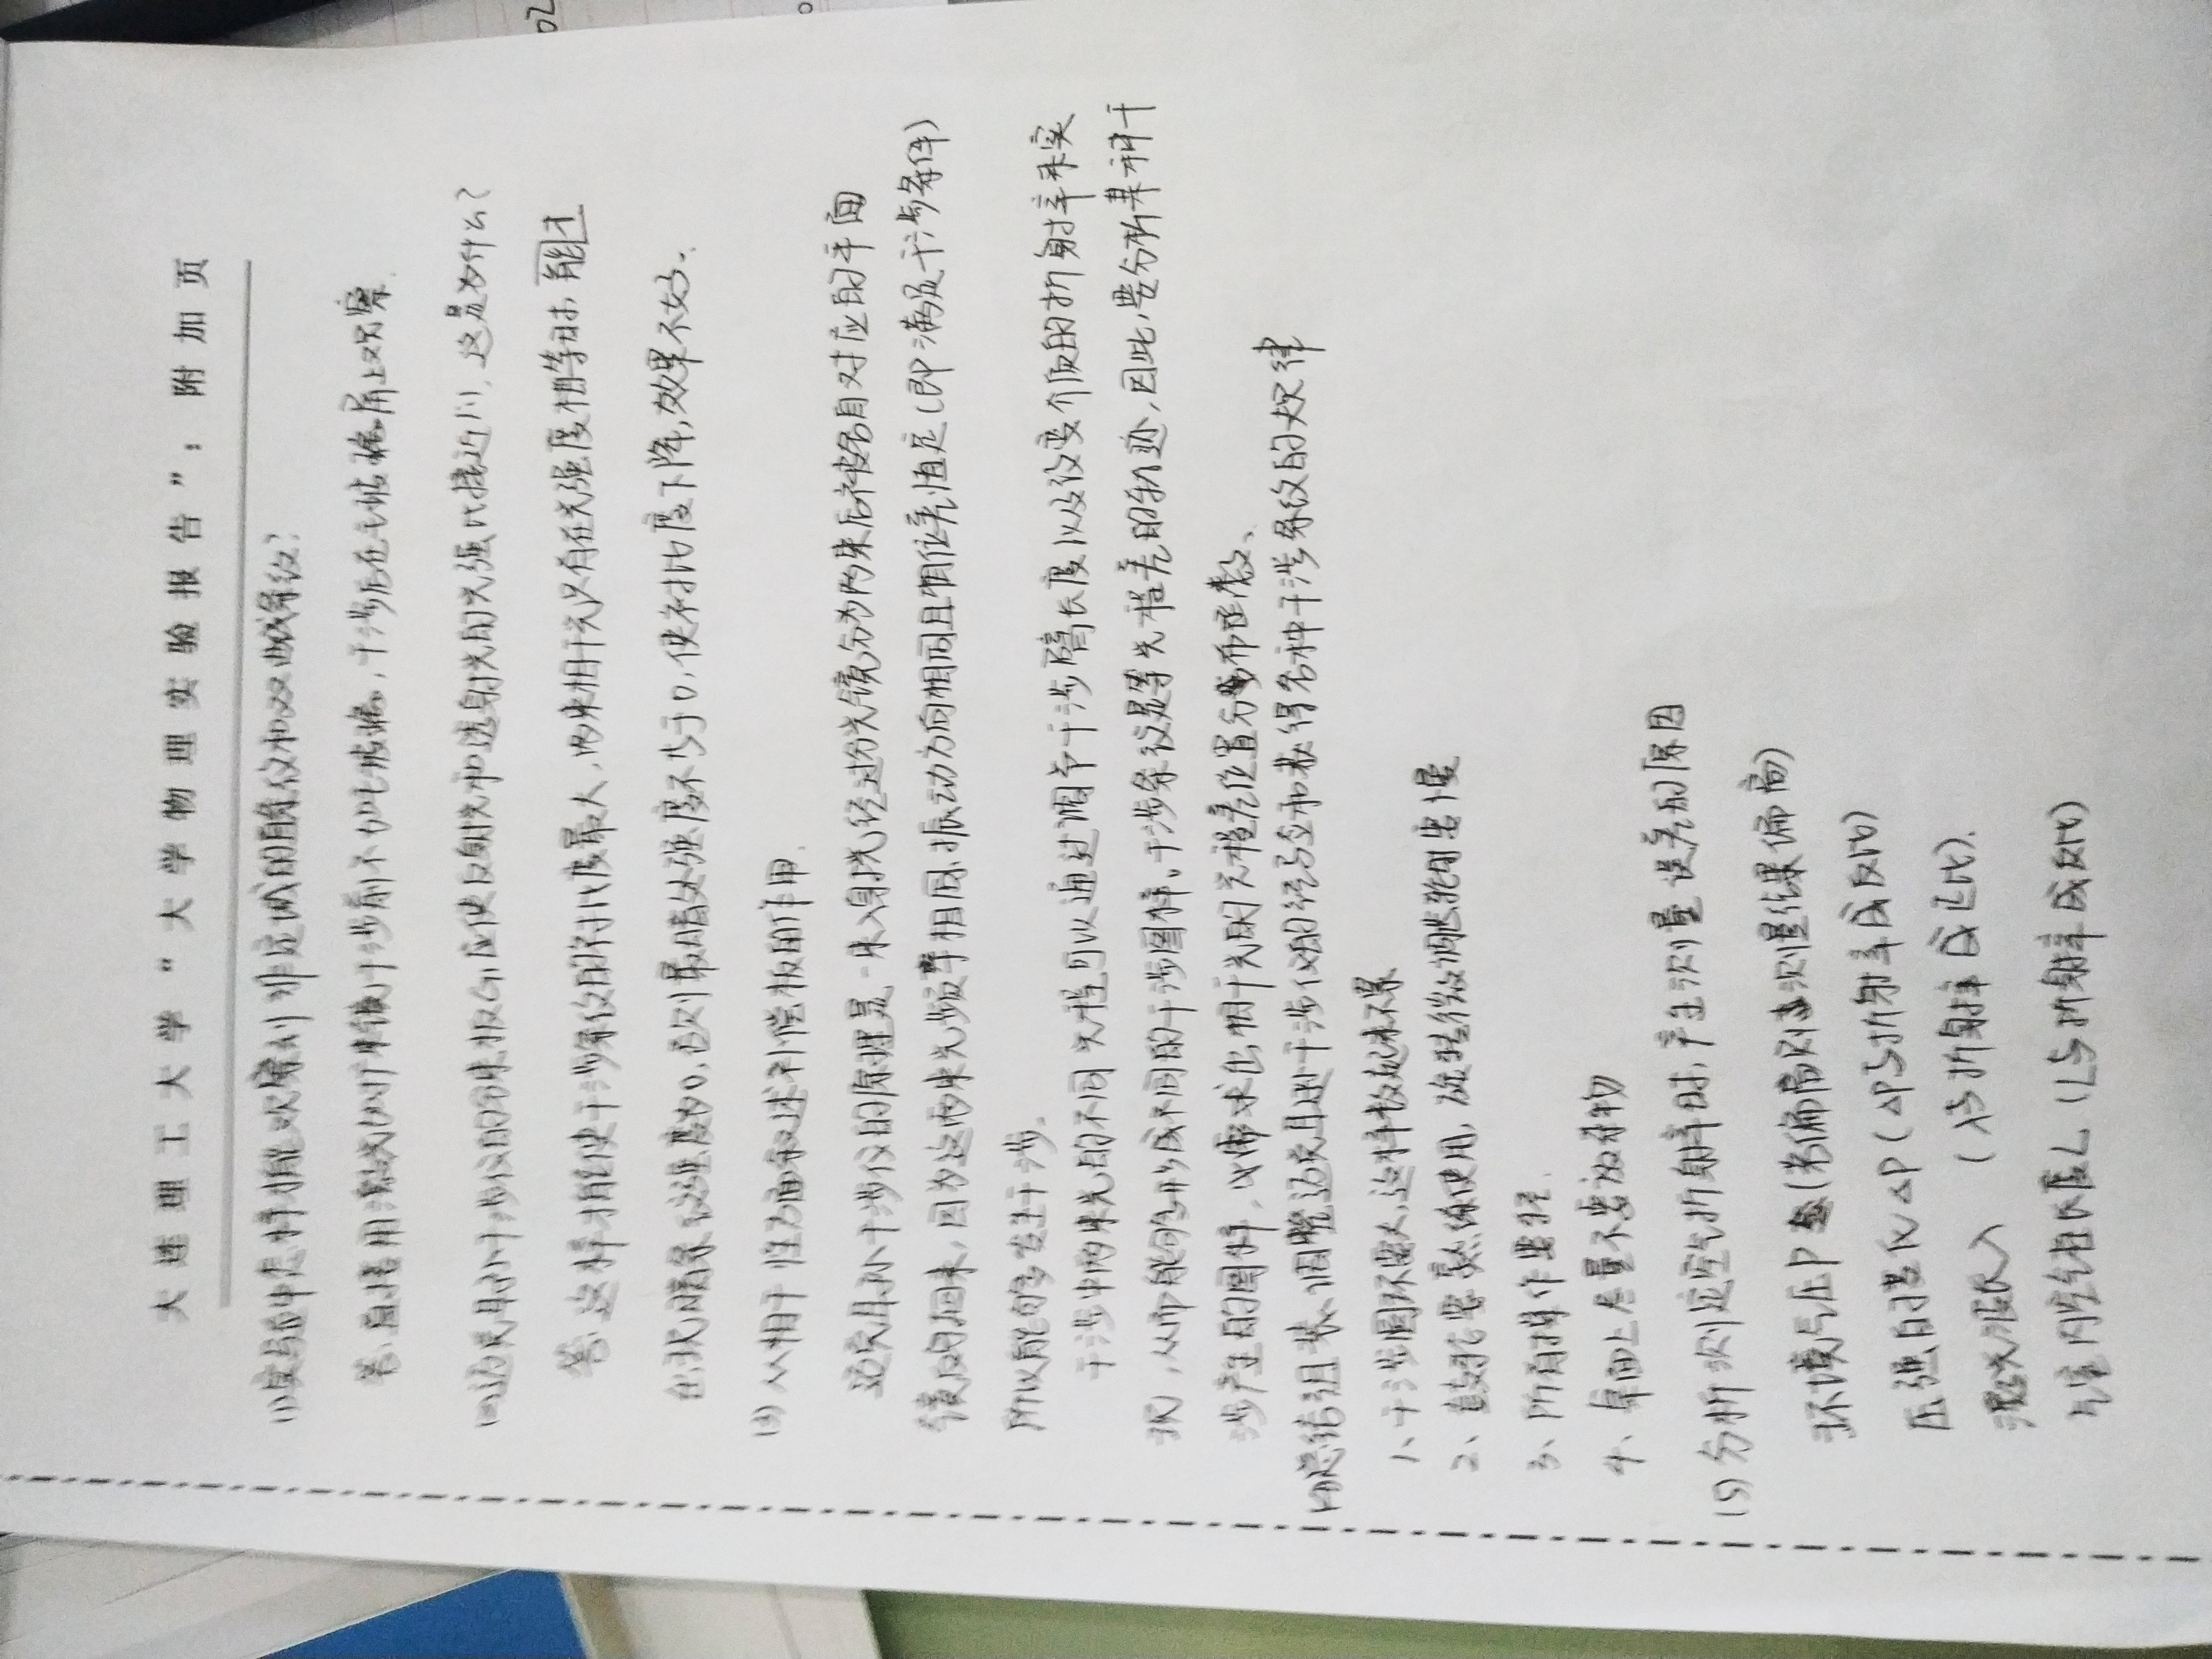 大连理工大学“大学物理实验报告”：附加页
(1)实验中怎样才能观察到非定域的直条纹和双曲线条纹?
答:直接用激光(的扩束镜)干涉前不加毛玻璃,干涉后在毛玻璃屏上观察.
(2)迈克耳孙干涉仪的分束板G₁应使反射光和透射光的光强比接近1:1,这是为什么?
答:这样才能使干涉条纹的衬比度最大,两束相干光只有在光强度相等时,能
出现暗条纹强度为0,否则最暗处强度不为于0,使衬比度下降,效果不好.
(3)从相干性方面叙述补偿板的作用.
迈克耳孙干涉仪的原理是一束入射光经过分光镜分为两束后被各自对应的平面
镜反射回来,因为这两束光频率相同、振动方向相同且相位差恒定(即满足干涉条件)
所以能够发生干涉.
干涉中两束光的不同光程可以通过调节干涉臂长度以及改变介质的折射率来实
现,从而能够形成不同的干涉图样。干涉条纹是等光程差的轨迹,因此,要分析某种干
涉产生的图样,必需求出相干光的光程差位置分布函数、
(4)总结组装、调整迈克耳逊干涉仪的经验和获得各种干涉条纹的规律
1、干涉圆环要大,这样数起来不累
2、鼓轮要熟练使用,旋转微调鼓轮时要慢
3、所有操作要轻.
4、桌面上尽量不要放杂物
(5)分析测定空气折射率时,产生测量误差的原因
环境气压P (若偏高则测量结果偏高)
压强的变化△P(△P与折射率成反比)
激光波长λ (λ与折射率成正比).
气室内空气柱长度L (L与折射率成反比)
02